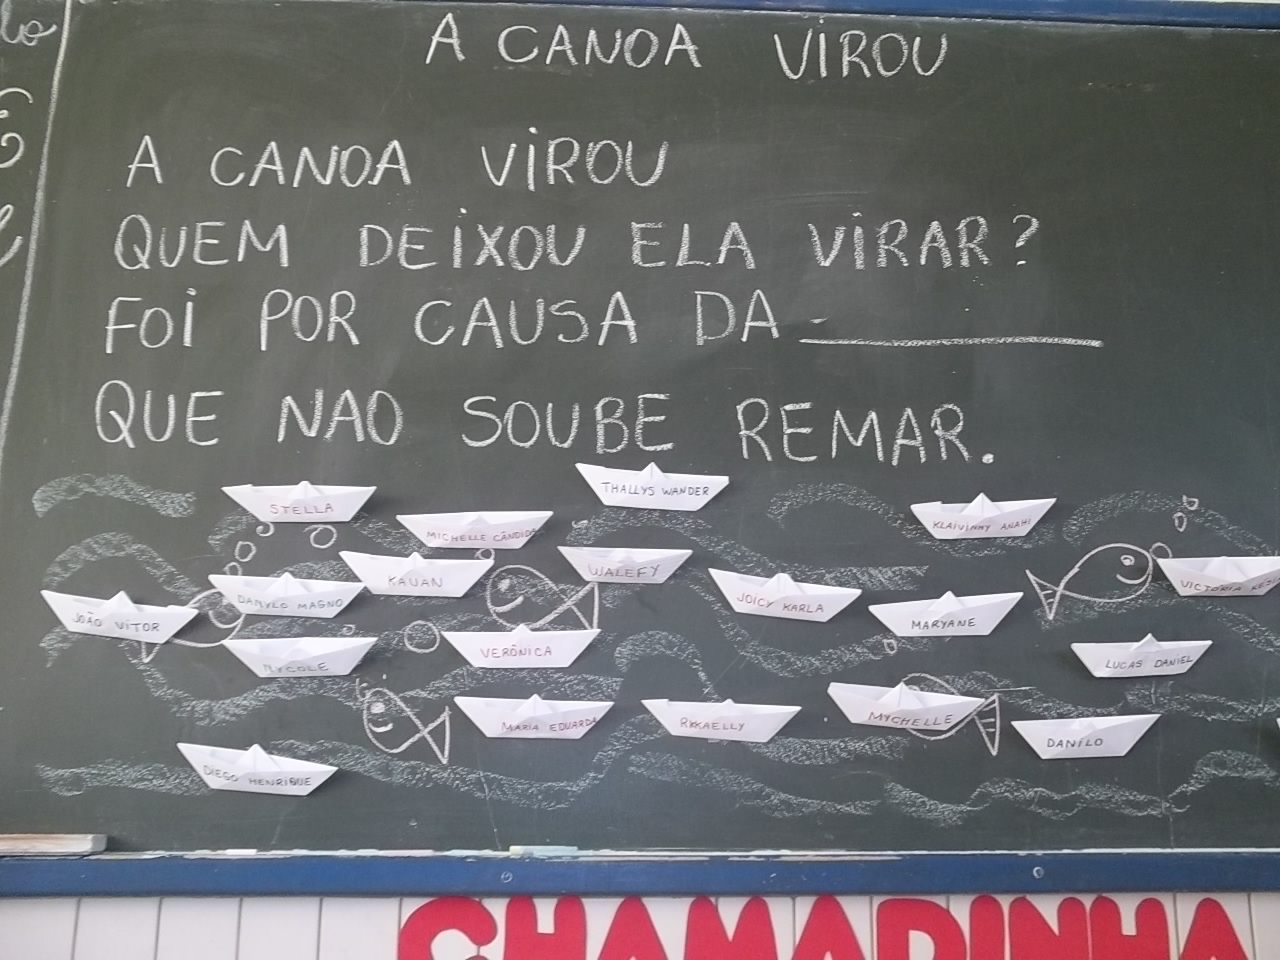 A CANOA VIROU
A CANOA VIROU
QUEM DEIXOU ELA VIRAR?
FOI POR CAUSA DA
QUE NAO SOUBE REMAR.
STELLA
THALLYS WANDER
MICHELLE CÂNDIDA
KLAIVINHY ANAHI
KAUAN
WALEFY
VICTORIA
DANYLO MAGNO
JOICY KARLA
JOÃO VITOR
MARYANE
VERÔNICA
NYCOLE
LUCAS DANIEL
MARIA EDUARDA
RIKAELLY
MYCHELLE
DANILO
DIEGO HENRIQUE
CHAMADINHA